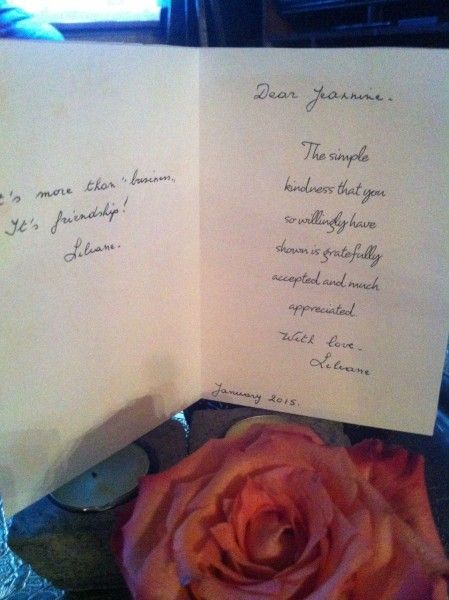 t's more than "business"
It's friendship!
Liliane.
Dear Jeannine.
The simple
kindness that you
so willingly have
shown is gratefully
accepted and much
appreciated.
With love.
Liliane
January 2015.